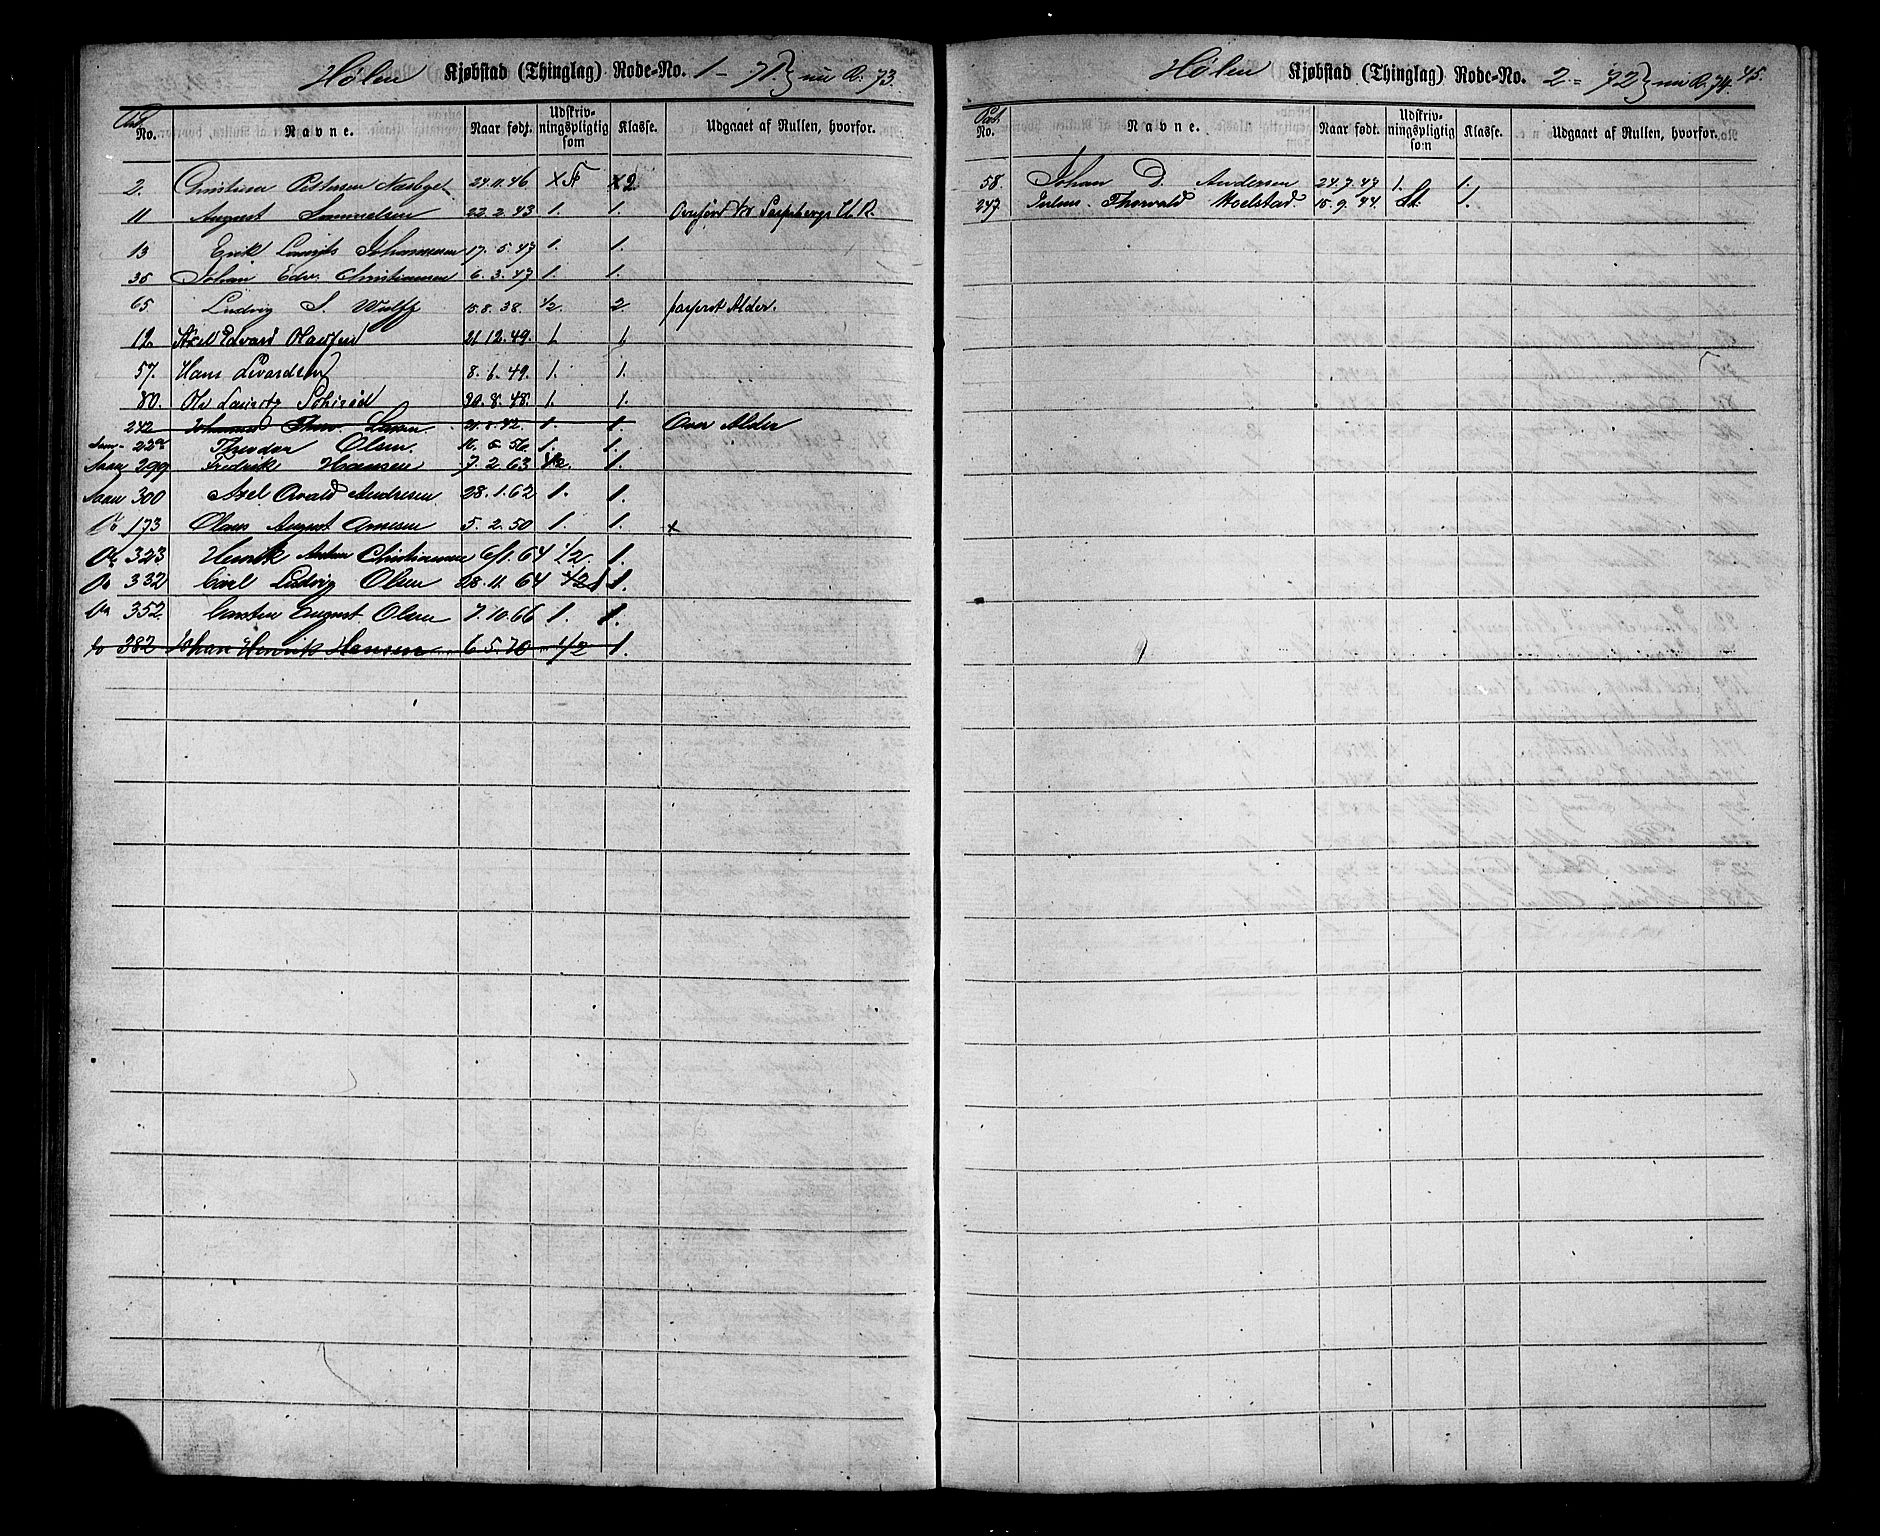 Hølen Kjøbstad (Thinglag) Rode-No. 1 = 71. nu R. 73.
Pat. No. Navne. Naar født. Udskrivningspligtig som Klasse. Udgaaet af Rullen, hvorfor.
2. Christian Pettersen 24.11.46 2
11 August Samuelsen 22.2.43 1. 1. Overført til Sarpsborg U. R.
13 Erik Lauritz Johannesen 17.5.47 1. 1.
36 Johan Edv. Christiansen 6.3.47 1. 1.
65 Ludvig S. Wulff 15.8.38 1/2 2. passeret Alder.
12 Axel Edvard 21.12.49. 1. 1.
57. Hans 8.6.49. 1. 1.
80. Ole Lauritz 20.8.48. 1. 1.
242 Johannes Thorv. Larsen. 1. 1 Over Alder
Theodor Olsen 56. 1. 1.
299 Fredrik Hansen 7.2.63 1/2. 1.
300 Axel Osvald Andresen 28.1.62 1. 1.
173 Olaus August 5.2.50 1. 1. x
323 Henrik Anton Christiansen 6/1.64 1/2. 1.
332 Carl Ludvig Olsen 28.11.64 1.
352. Carsten August Olsen 7.10.66 1. 1.
382 Johan Henrik Hansen 6.5.70 1/2 1.
Hølen Kjøbstad (Thinglag) Rode-No. 2 = 72 nu R. 74. 45.
Pat. No. Navne. Naar født. Udskrivningspligtig som Klasse. Udgaaet af Rullen, hvorfor.
58. Johan D. Andersen 24.7.47 1. 1.
247 Thorvald Moelstad. 15.9.44. 1.